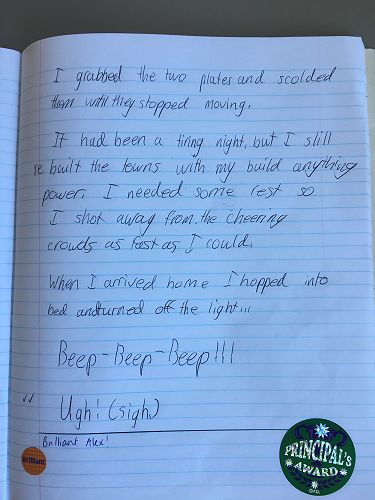 I grabbed the two plates and scolded
them until they stopped moving.
It had been a tiring night, but I still
re built the towns with my build anything
power. I needed some rest so
I shot away from the cheering
crowds as fast as I could.
When I arrived home I hopped into
bed and turned off the light...
Beep-Beep-Beep!!!
Ugh! (sigh)
Brilliant Alex!
Brilliant
PRINCIPAL'S
AWARD